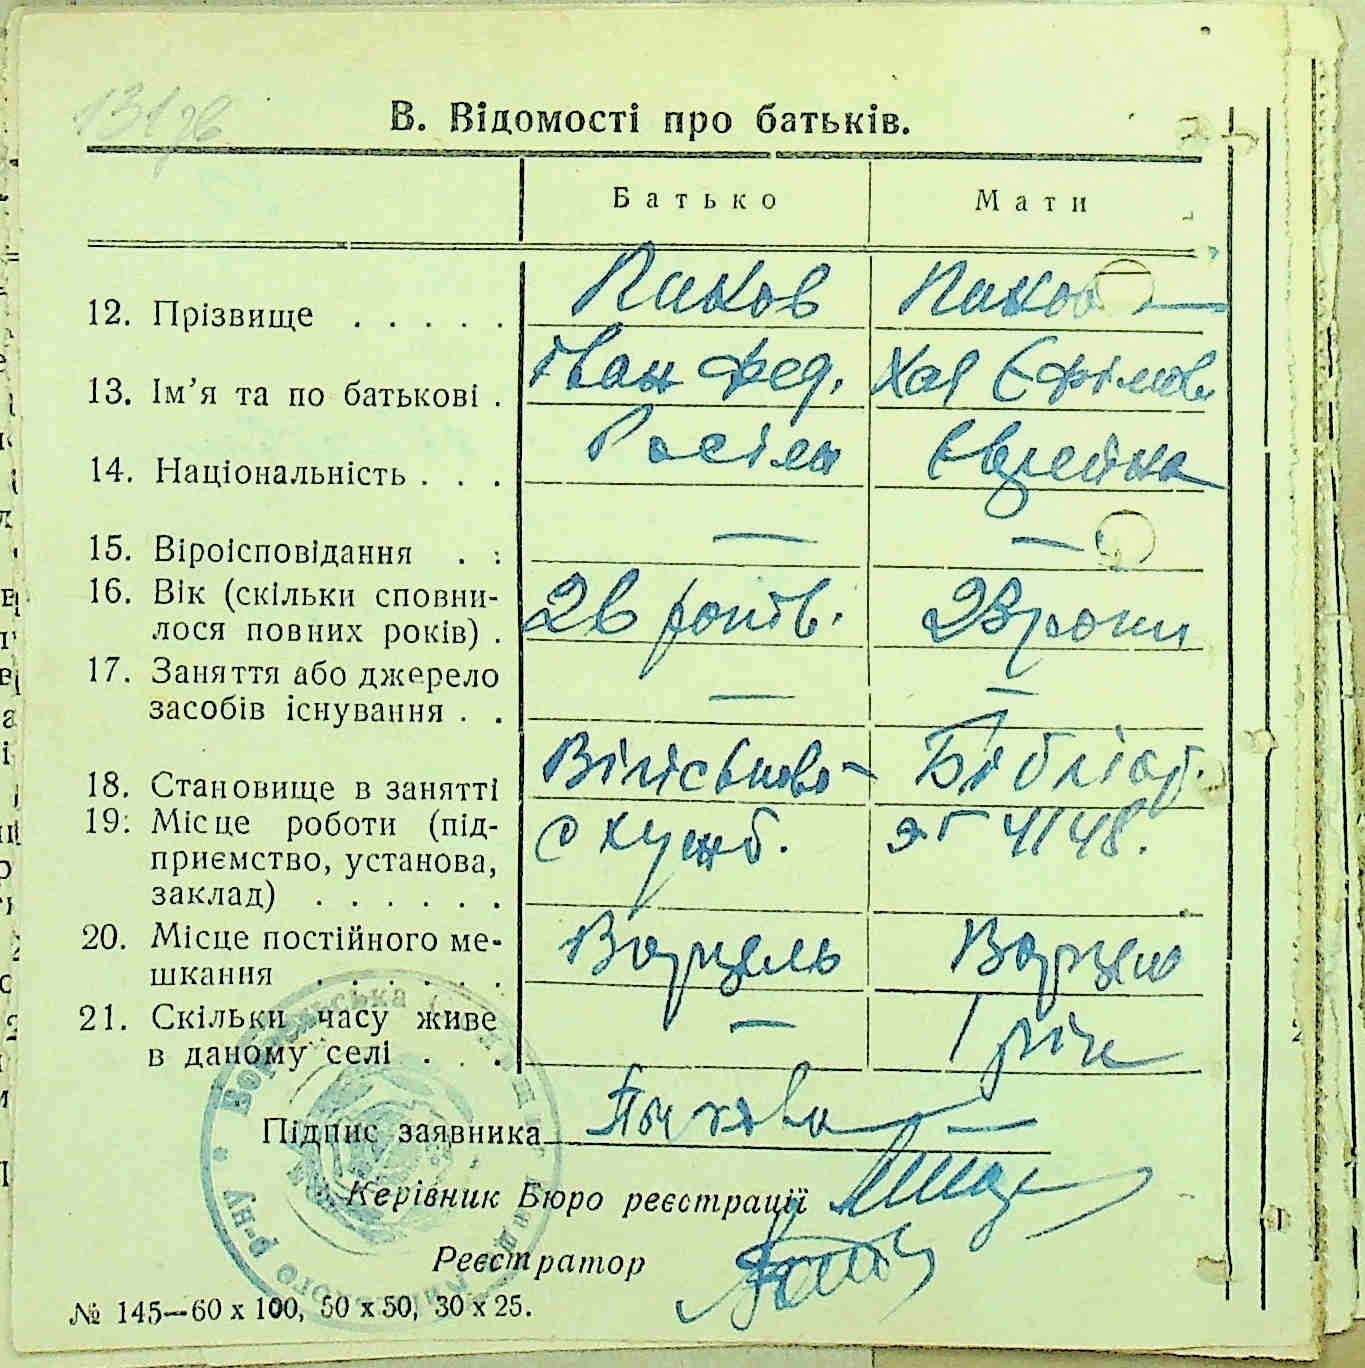 131 зв
В. Відомості про батьків.
Батько Мати
12. Прізвище . . . . . Паков Паков
13. Ім’я та по батькові . Іван Фед. Хая Єфімов
14. Національність . . . Росіян Єврейка
15. Віроісповідання . . — —
16. Вік (скільки сповни-
лося повних років) . 26 років. 23 роки
17. Заняття або джерело
засобів існування . . — —
18. Становище в занятті Військово- Бібліот.
19. Місце роботи (під- служб. эг 4148.
приємство, установа,
заклад) . . . . . .
20. Місце постійного ме-
шкання . . . . . . Ворзель Ворзель
21. Скільки часу живе
в даному селі . . . — 1 рік
Підпис заявника
Керівник Бюро реєстрації
Реєстратор
№ 145—60 x 100, 50 x 50, 30 x 25.